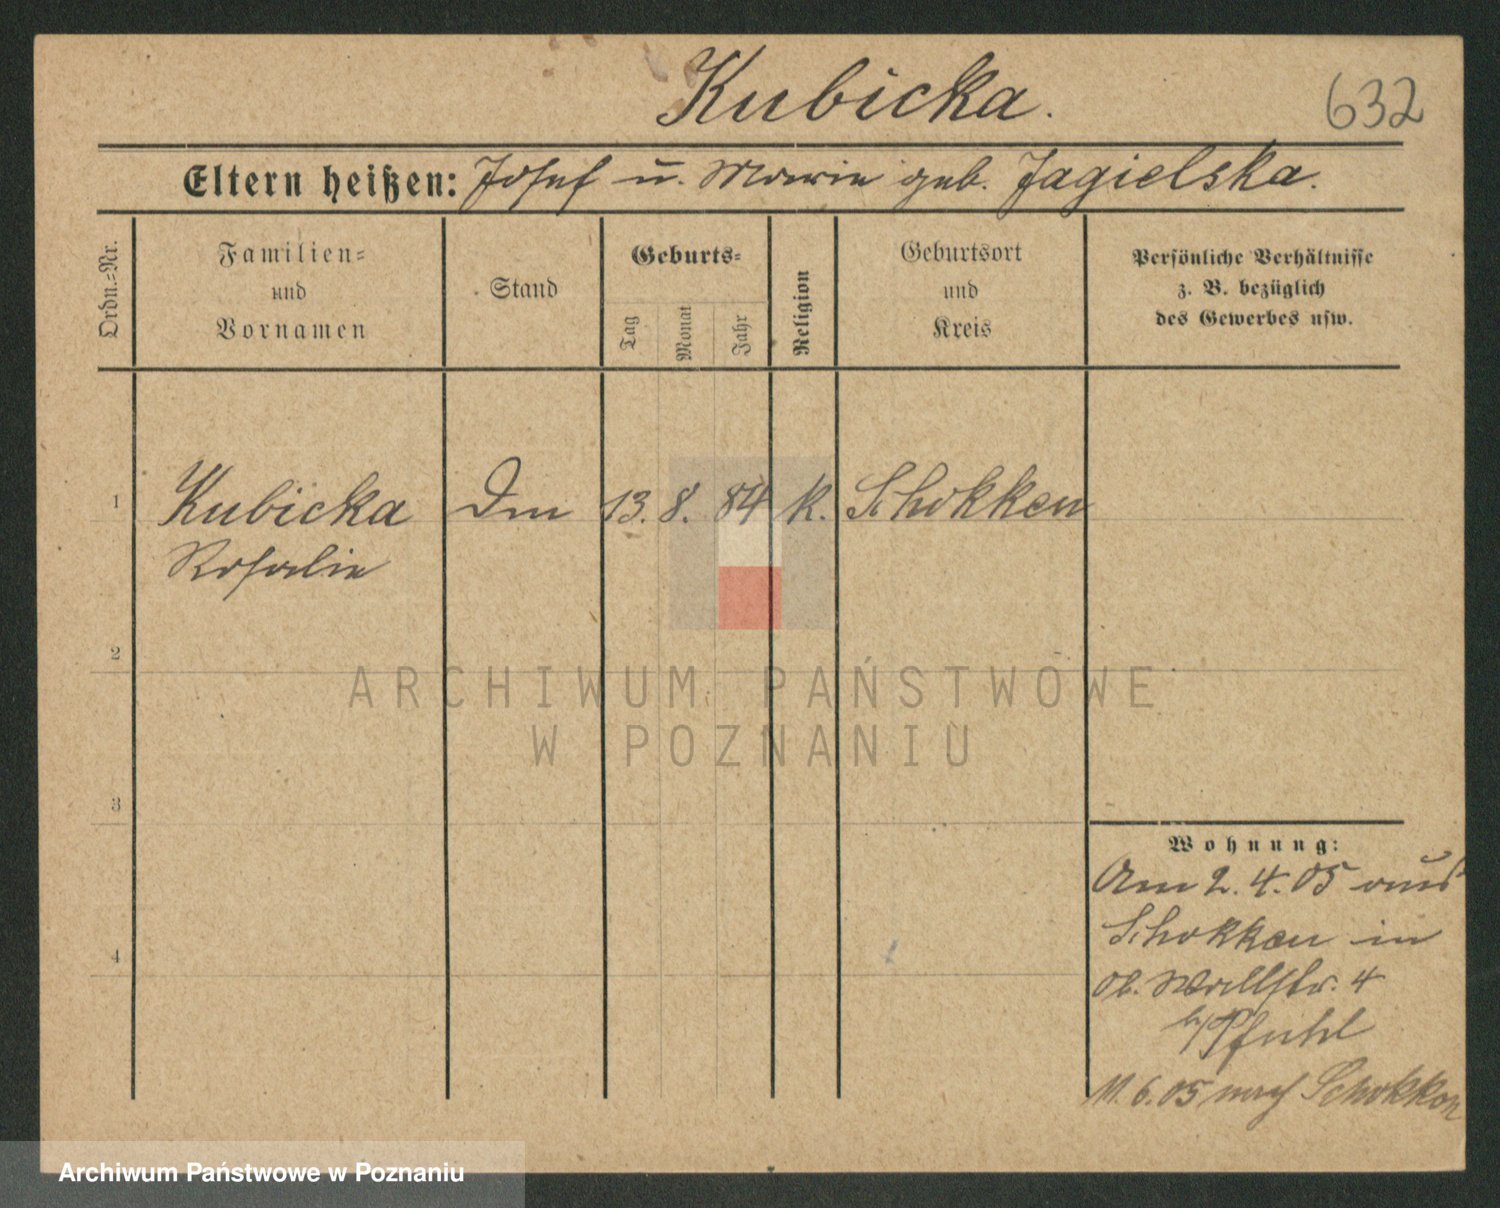 Kubicka.
632
Eltern heißen: Josef u. Marie geb. Jagielska.
Ordn.=Nr.
Familien=
und
Vornamen
Stand
Geburts=
Tag
Monat
Jahr
Religion
Geburtsort
und
Kreis
Persönliche Verhältnisse
z. B. bezüglich
des Gewerbes usw.
1 Kubicka 13. 8. 84 k. Schokken
Rosalie
2
ARCHIWUM PAŃSTWOWE
W POZNANIU
3
Wohnung:
Am 2. 4. 05 aus
Schokken in
Ob. Wallstr. 4
b/Pfuhl
4
11. 6. 05 nach Schokken
Archiwum Państwowe w Poznaniu